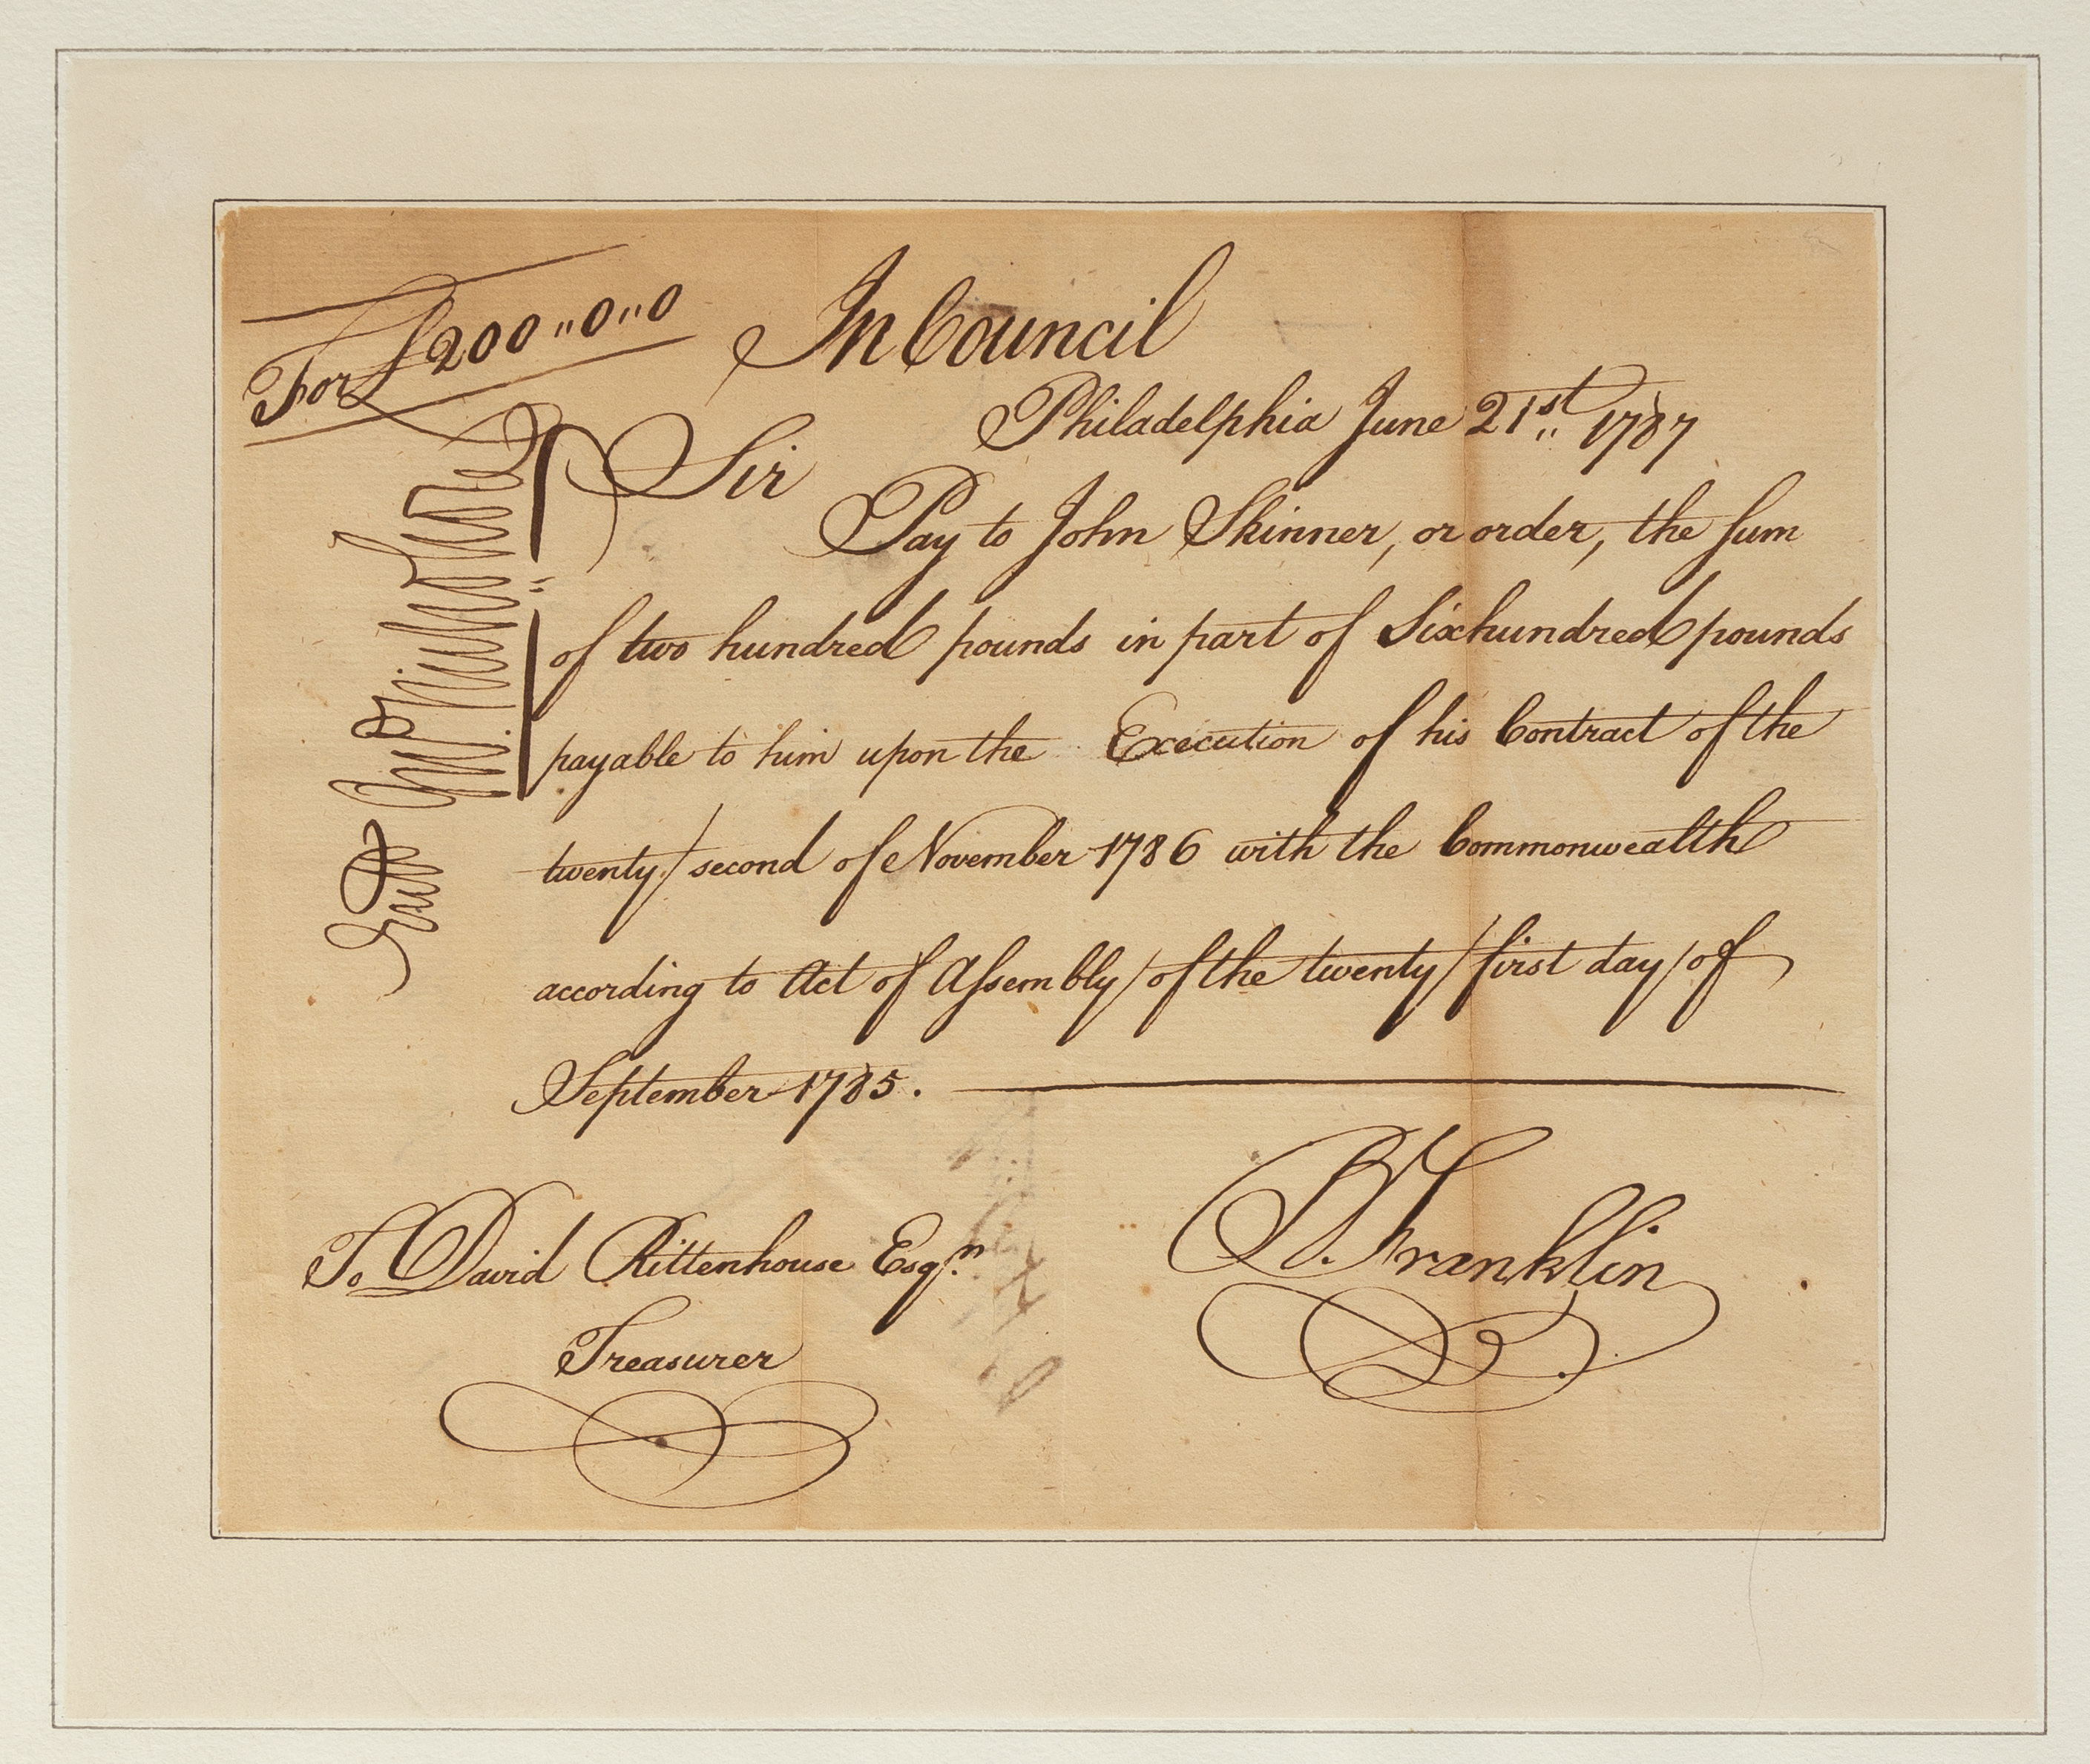 For £200 "0 "0
In Council
Philadelphia June 21st 1787
Sir
Pay to John Skinner, or order, the ſum
of two hundred pounds in part of Six hundred pounds
payable to him upon the Execution of his Contract of the
twenty/second of November 1786 with the Commonwealth
according to Act of Aſsembly/of the twenty/first day/of
September 1785.
B. Franklin
To David Rittenhouse Esqr.
Treasurer
Jno. Nicholson